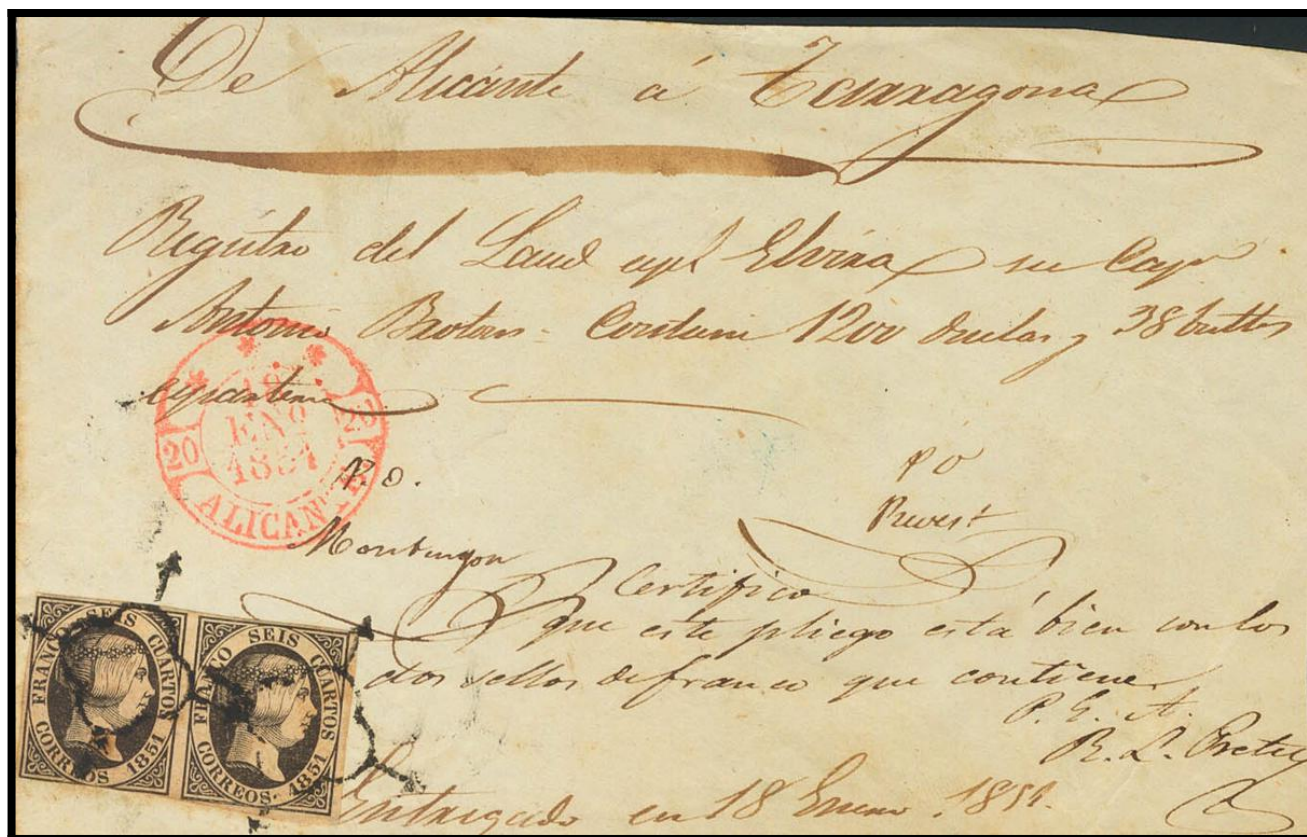 De Alicante á Tarragona
Registro del Laud espl Elvira su Capn
Antonio Brotons = Contiene 1200 duelas y 38 bultos
esparteria
18
ENO
1851
20 20
ALICANTE
P. O.
pO
Montengon
Certifico
que este pliego está bien con los
dos sellos de franco que contiene
P. E. A.
R. L.
Entregado en 18 Enero 1851.
FRANCO SEIS CUARTOS
CORREOS 1851
FRANCO SEIS CUARTOS
CORREOS · 1851